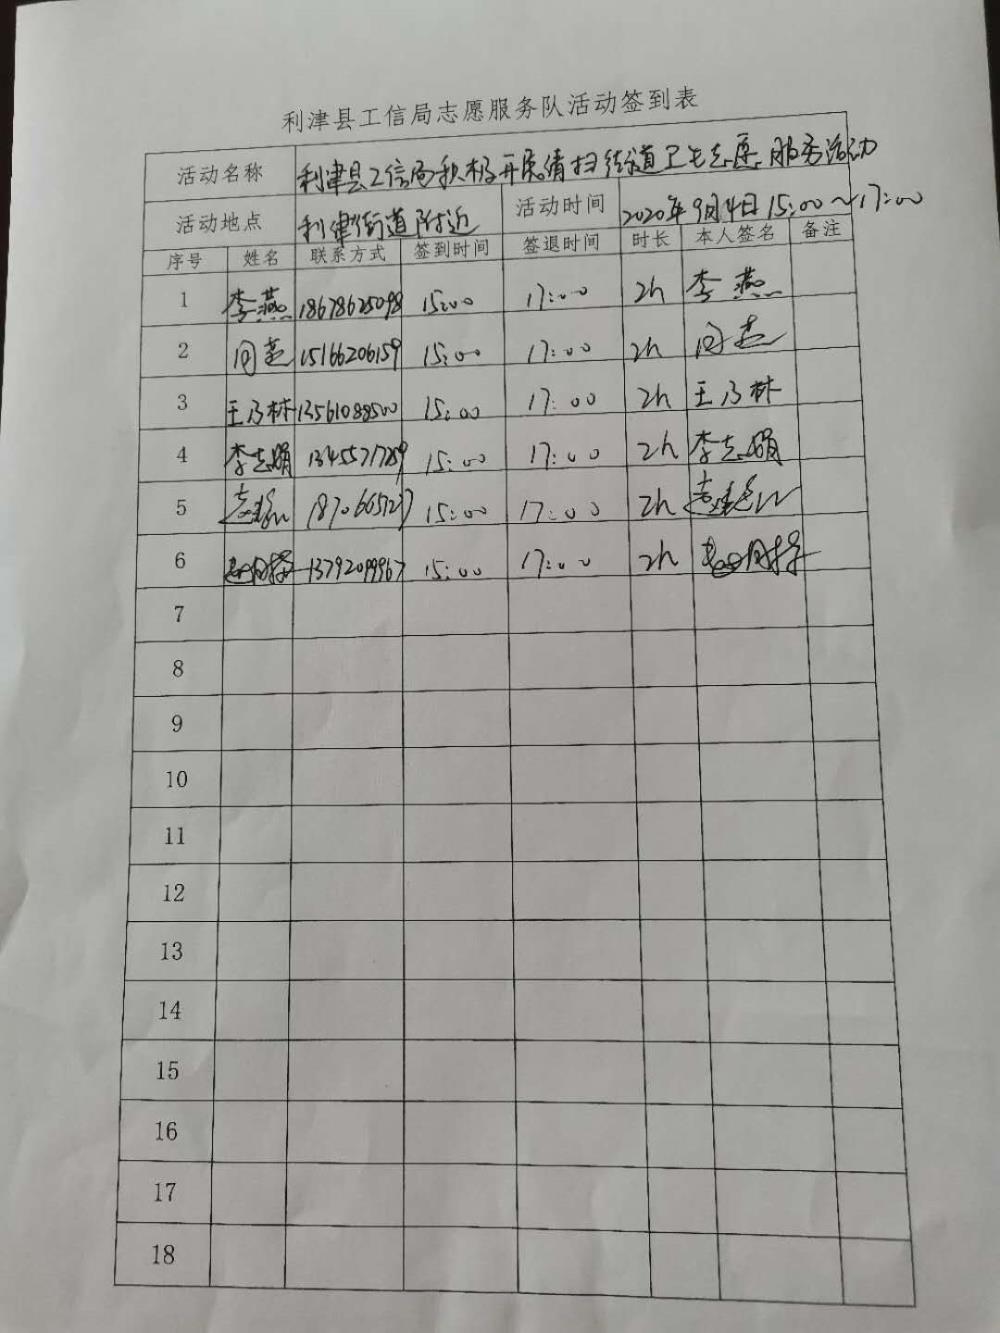 利津县工信局志愿服务队活动签到表
活动名称 利津县工信局积极开展清扫街道卫生志愿服务活动
活动地点 利津街道附近 活动时间 2020年9月4日15:00~17:00
序号 姓名 联系方式 签到时间 签退时间 时长 本人签名 备注
1 李燕 18678625098 15:00 17:00 2h 李燕
2 15166206159 15:00 17:00 2h
3 王乃林 13561088500 15:00 17:00 2h 王乃林
4 李志娟 15:00 17:00 2h 李志娟
5 15:00 17:00 2h
6 13792099967 15:00 17:00 2h
7
8
9
10
11
12
13
14
15
16
17
18